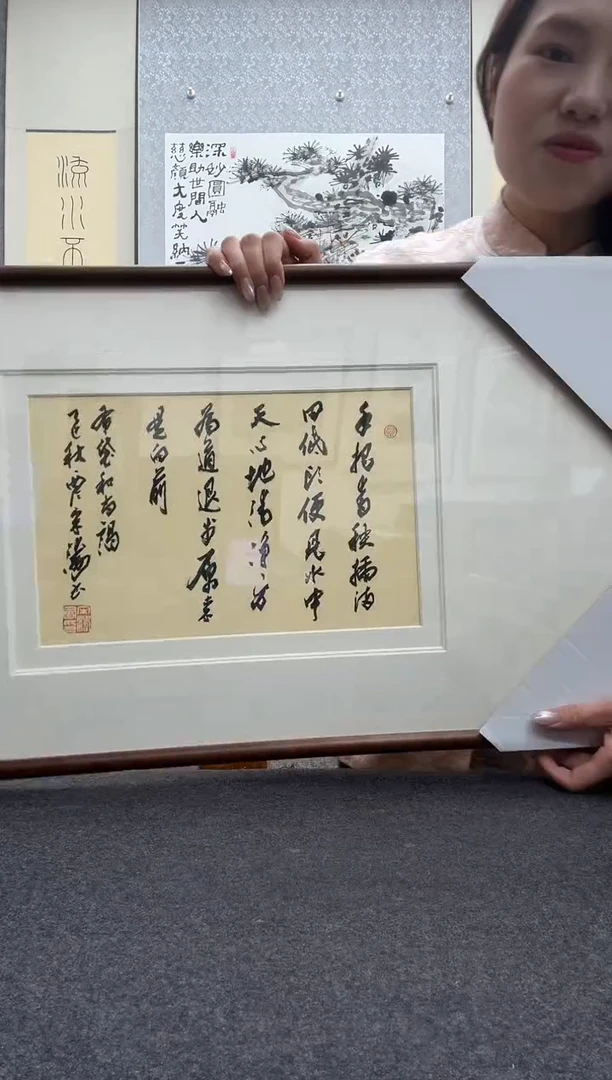 深妙圓融
樂助世間人
慈顏大度笑納
流水不
手把青秧插满
田低头便见水中
天心地清净方
为道退步原来
是向前
布袋和尚偈
秋